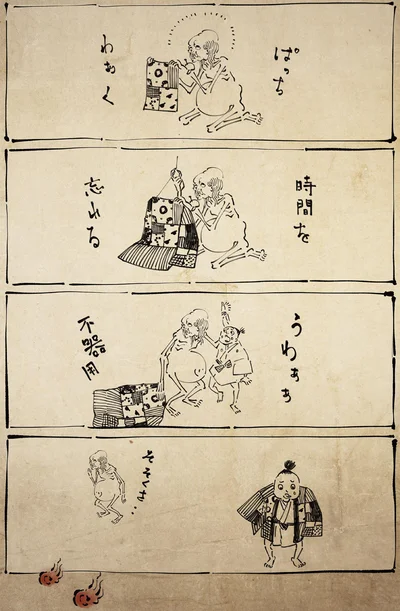 ぱっち
わあく
時間を
忘れる
うわぁぁ
不器用
そそくさ..